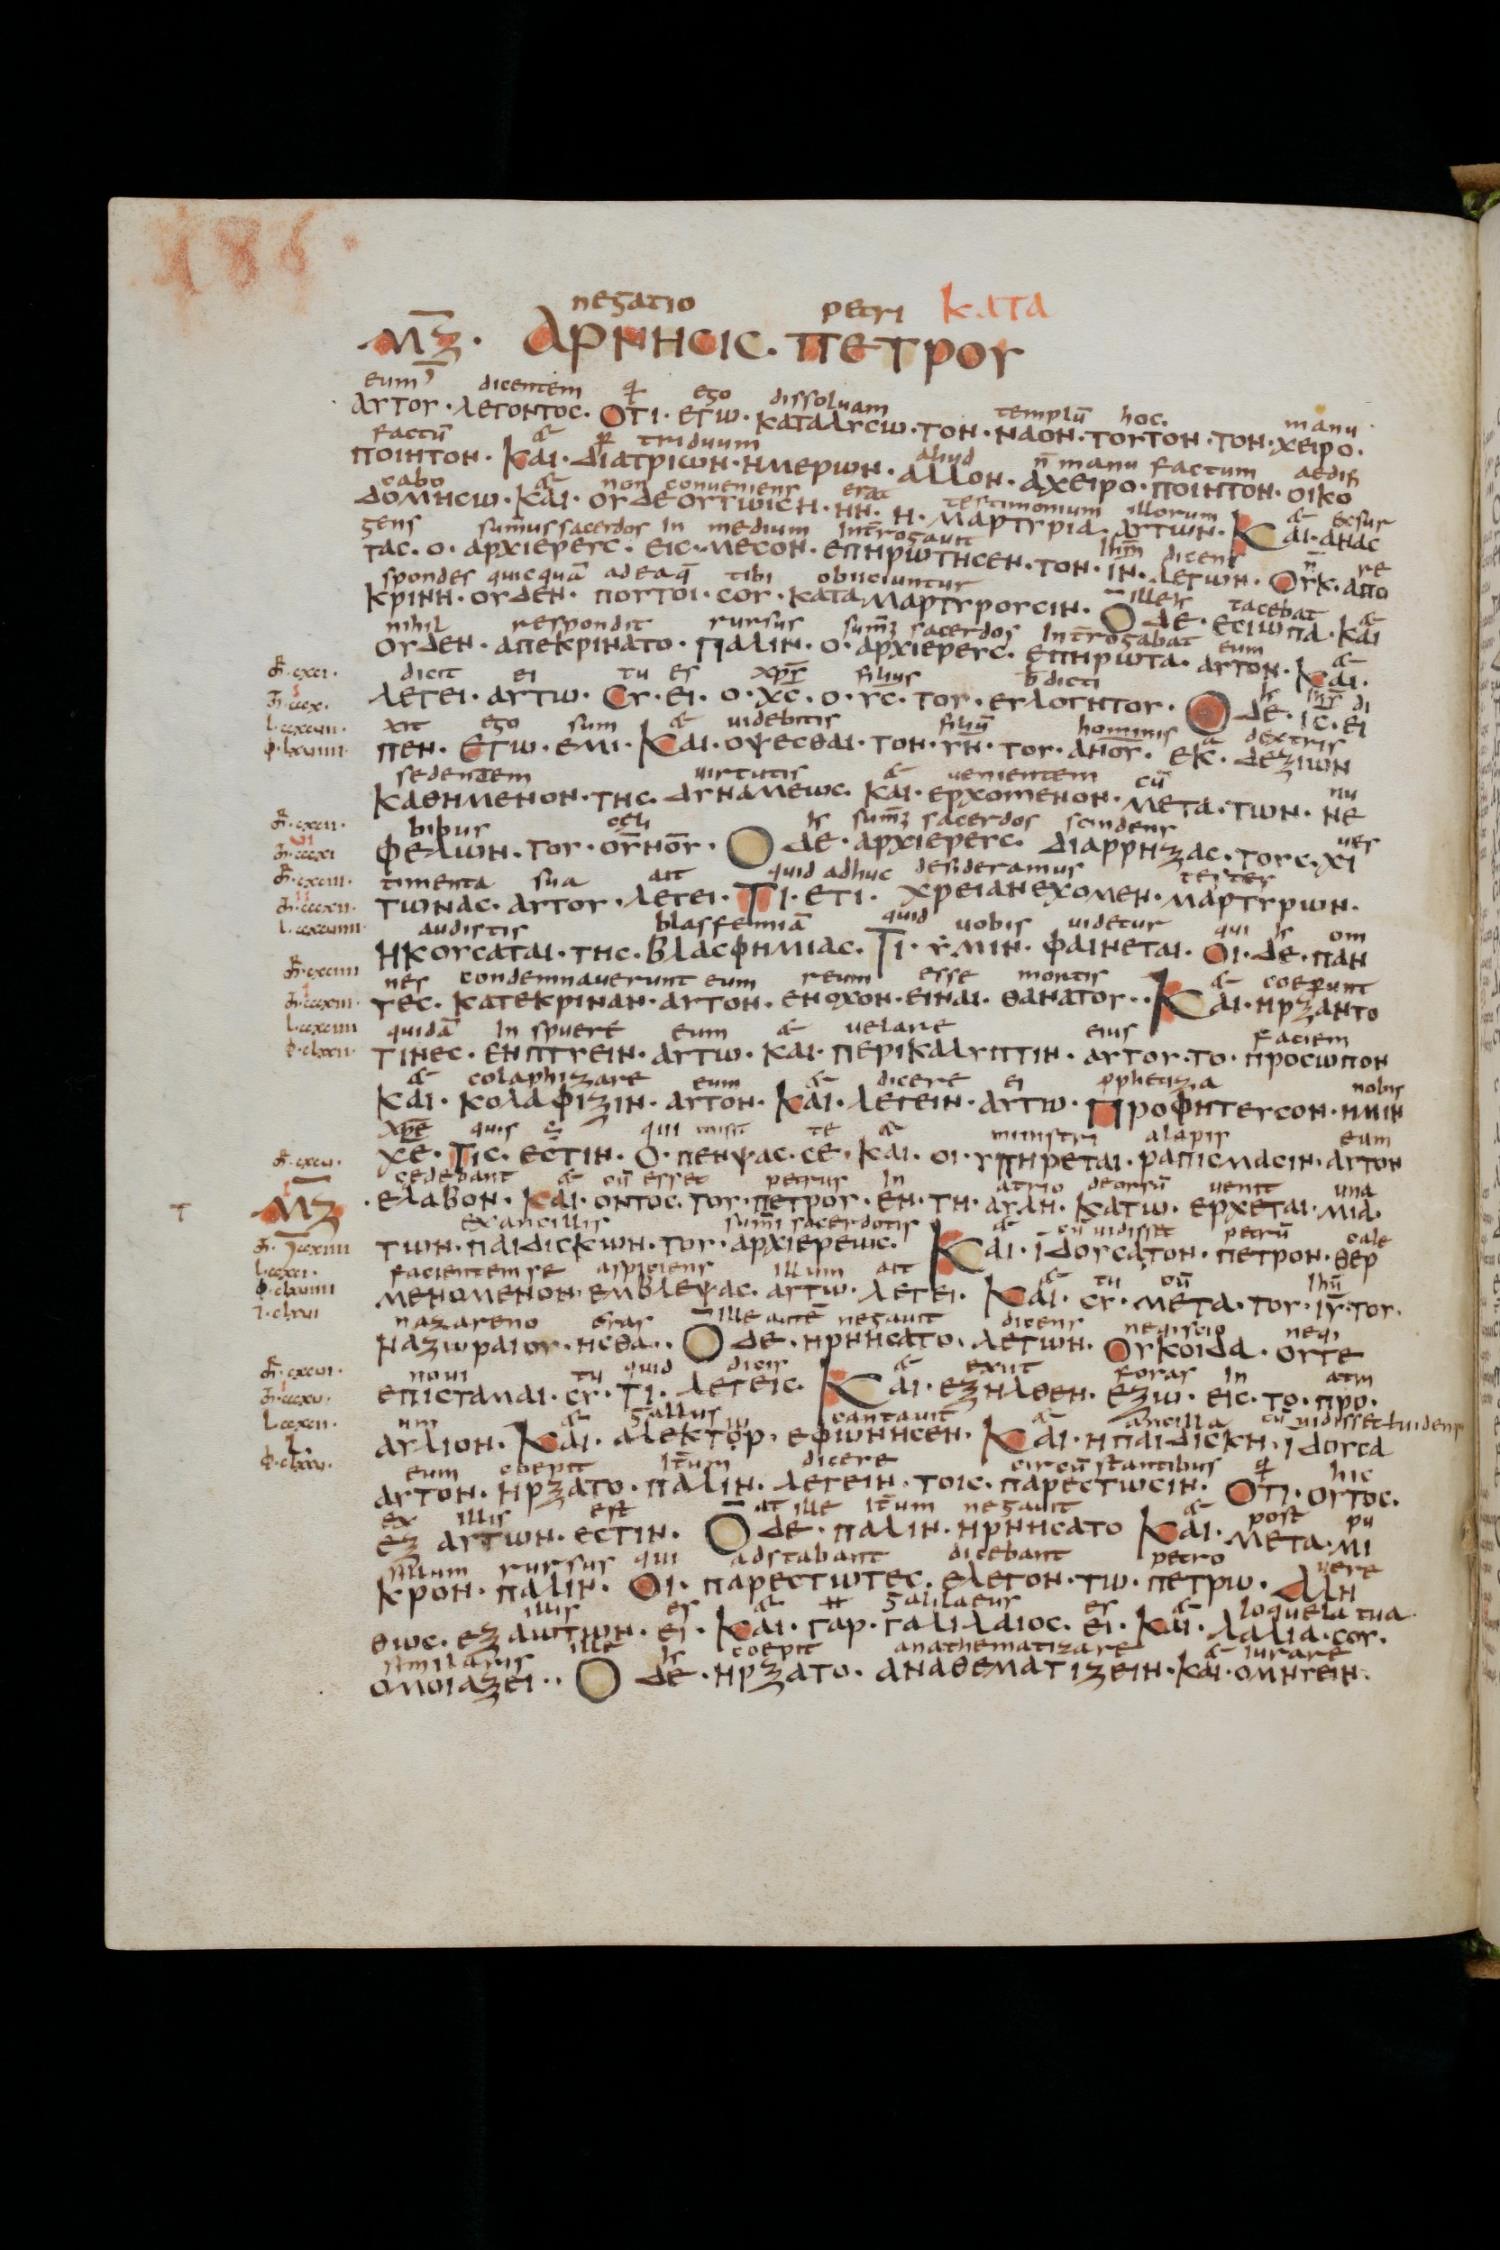 186
negatio petri κατα
ΜΖ· ΑΡΝΗCΙC· ΠΕΤΡΟΥ
eum dicentem ego dissoluam templū hoc. manu
ΑΥΤΟΥ·ΛΕΓΟΝΤΟC· ΟΤΙ· ΕΓΩ· ΚΑΤΑΛΥCΩ·ΤΟΝ·ΝΑΟΝ·ΤΟΥΤΟΝ·ΤΟΝ·ΧΕΙΡΟ·
factū & triduum aliud n̄ manu factum aedifi
ΠΟΙΗΤΟΝ· ΚΑΙ·ΔΙΑΤΡΙΩΝ·ΗΜΕΡΩΝ· ΑΛΛΟΝ· ΑΧΕΙΡΟ·ΠΟΙΗΤΟΝ·ΟΙΚΟ
cabo & non conueniens erat testimonium illorum & exsur
ΔΟΜΗCΩ·ΚΑΙ· ΟΥΔΕΟΥΤΩΙCΗ·ΗΝ· Η·ΜΑΡΤΥΡΙΑ·ΑΥΤΩΝ·ΚΑΙ·ΑΝΑC
gens sum̄us sacerdos in medium interrogauit ihm̄ dicens n̄ re
ΤΑC·Ο·ΑΡΧΙΕΡΕΥC· ΕΙC·ΜΕCΟΝ·ΕΠΗΡΩΤΗCΕΝ·ΤΟΝ·ΙΝ̄·ΛΕΓΩΝ·ΟΥΚ·ΑΠΟ
spondes quicquā ad ea q̄ tibi obiiciuntur ille tacebat &
ΚΡΙΝΗ·ΟΥΔΕΝ· ΠΟΥΤΟΙ·CΟΥ·ΚΑΤΑΜΑΡΤΥΡΟΥCΙΝ· Ο ΔΕ·ΕCΙΩΠΑ·ΚΑΙ
nihil respondit rursus sum̄ sacerdos interrogabat eum &
ΟΥΔΕΝ·ΑΠΕΚΡΙΝΑΤΟ·ΠΑΛΙΝ·Ο·ΑΡΧΙΕΡΕΥC· ΕΠΗΡΩΤΑ·ΑΥΤΟΝ·ΚΑΙ·
dicit ei tu es xps̄ filius b̄dicti is ihs̄ di
ΛΕΓΕΙ·ΑΥΤΩ· CΥ·ΕΙ·Ο·ΧC·Ο·ΥC·ΤΟΥ·ΕΥΛΟΓΗΤΟΥ· Ο ΔΕ·ΙC̄·ΕΙ
xit ego sum & uidebitis filiū hominis a dextris
ΠΕΝ· ΕΓΩ·ΕΜΙ· ΚΑΙ·ΟΨΕCΘΑΙ·ΤΟΝ·ΥΝ̄·ΤΟΥ·ΑΝΟῩ· ΕΚ·ΔΕΞΙΩΝ
sedentem uirtutis & uenientem cū nu
ΚΑΘΗΜΕΝΟΝ·ΤΗC· ΔΥΝΑΜΕΩC· ΚΑΙ·ΕΡΧΟΜΕΝΟΝ·ΜΕΤΑ·ΤΩΝ·ΝΕ
bibus celi is sum̄ sacerdos scindens ues
ΦΕΛΩΝ·ΤΟΥ·ΟΥΝΟΥ· Ο ΔΕ·ΑΡΧΙΕΡΕΥC· ΔΙΑΡΡΗΞΑC·ΤΟΥC·ΧΙ
timenta sua ait quid adhuc desideramus testes
ΤΩΝΑC·ΑΥΤΟΥ·ΛΕΓΕΙ·ΤΙ·ΕΤΙ· ΧΡΕΙΑΝΕΧΟΜΕΝ·ΜΑΡΤΥΡΩΝ·
audistis blasfemiā quid uobis uidetur qui is om
ΗΚΟΥCΑΤΑΙ·ΤΗC·ΒΛΑCΦΗΜΙΑC·ΤΙ·ΥΜΙΝ·ΦΑΙΝΕΤΑΙ·ΟΙ·ΔΕ·ΠΑΝ
nes condemnauerunt eum reum esse mortis & coeperunt
ΤΕC·ΚΑΤΕΚΡΙΝΑΝ·ΑΥΤΟΝ·ΕΝΟΧΟΝ·ΕΙΝΑΙ·ΘΑΝΑΤΟΥ··ΚΑΙ·ΗΡΞΑΝΤΟ
quidā inspuere eum & uelare eius faciem
ΤΙΝΕC·ΕΝΠΤΥΕΙΝ·ΑΥΤΩ·ΚΑΙ·ΠΕΡΙΚΑΛΥΠΤΙΝ·ΑΥΤΟΥ·ΤΟ·ΠΡΟCΩΠΟΝ
& colaphizare eum & dicere ei pphetiza nobis
ΚΑΙ·ΚΟΛΑΦΙΖΙΝ·ΑΥΤΟΝ·ΚΑΙ·ΛΕΓΕΙΝ·ΑΥΤΩ·ΠΡΟΦΗΤΕΥCΟΝ·ΗΜΙΝ
xpē quis qui te & ministri alapis eum
ΧΕ̄·ΤΙC·ΕCΤΙΝ·Ο·ΠΕΝΨΑC·CΕ·ΚΑΙ·ΟΙ·ΥΠΗΡΕΤΑΙ·ΡΑΠΙCΜΑCΙΝ·ΑΥΤΟΝ
cedebant & cū esset petrus in atrio deorsū uenit una
ΜΖ ·ΕΛΑΒΟΝ·ΚΑΙ·ΟΝΤΟC·ΤΟΥ·ΠΕΤΡΟΥ·ΕΝ·ΤΗ·ΑΥΛΗ·ΚΑΤΩ·ΕΡΧΕΤΑΙ·ΜΙΑ·
ex ancillis sum̄i sacerdotis & cū uidisset petrū cale
ΤΩΝ·ΠΑΙΔΙCΚΩΝ·ΤΟΥ·ΑΡΧΙΕΡΕΩC· ΚΑΙ·ΙΔΟΥCΑΤΟΝ·ΠΕΤΡΟΝ·ΘΕΡ
facientem se aspiciens illum ait & tu cū ihū
ΜΕΝΟΜΕΝΟΝ·ΕΜΒΛΕΨΑC·ΑΥΤΩ·ΛΕΓΕΙ· ΚΑΙ·CΥ·ΜΕΤΑ·ΤΟΥ·ΙῩ·ΤΟΥ·
nazareno eras ille autē negauit dicens neqiscio neqi
ΝΑΖΩΡΑΙΟΥ·ΗCΘΑ·· Ο ΔΕ·ΗΡΝΗCΑΤΟ·ΛΕΓΩΝ·ΟΥΚΟΙΔΑ·ΟΥΤΕ
noui tu quid dicis & exiit foras in atri
ΕΠΙCΤΑΜΑΙ·CΥ·ΤΙ·ΛΕΓΕΙC·ΚΑΙ·ΕΞΗΛΘΕΝ·ΕΞΩ·ΕΙC·ΤΟ·ΠΡΟ·
um & gallus cantauit & ancilla cū uidisset
ΑΥΛΙΟΝ·ΚΑΙ·ΑΛΕΚΤΟΡ·ΕΦΩΝΗCΕΝ·ΚΑΙ·ΗΠΑΙΔΙCΚΗ·ΙΔΟΥCΑ
eum coepit dicere circūstantibus hic
ΑΥΤΟΝ·ΗΡΞΑΤΟ·ΠΑΛΙΝ·ΛΕΓΕΙΝ·ΤΟΙC·ΠΑΡΕCΤΩCΙΝ·ΟΤΙ·ΟΥΤΟC·
ex illis est at ille negauit & post pu
ΕΞ ΑΥΤΩΝ·ΕCΤΙΝ· Ο ΔΕ·ΠΑΛΙΝ·ΗΡΝΗCΑΤΟ ΚΑΙ·ΜΕΤΑ·ΜΙ
sillum rursus qui adstabant dicebant petro uere
ΚΡΟΝ·ΠΑΛΙΝ·ΟΙ·ΠΑΡΕCΤΩΤΕC·ΕΛΕΓΟΝ·ΤΩ·ΠΕΤΡΩ·ΑΛΗ
illis es & galilaeus es & loquela tua
ΘΩC·ΕΞ ΑΥΤΩΝ·ΕΙ·ΚΑΙ·ΓΑΡ·ΓΑΛΙΛΑΙΟC·ΕΙ·ΚΑΙ·ΛΑΛΙΑ·CΟΥ·
similaris ille is coepit anathematizare & iurare
ΟΜΟΙΑΖΕΙ·· Ο ΔΕ·ΗΡΞΑΤΟ·ΑΝΑΘΕΜΑΤΙΖΕΙΝ·ΚΑΙ·ΟΜΝΥΕΙΝ·